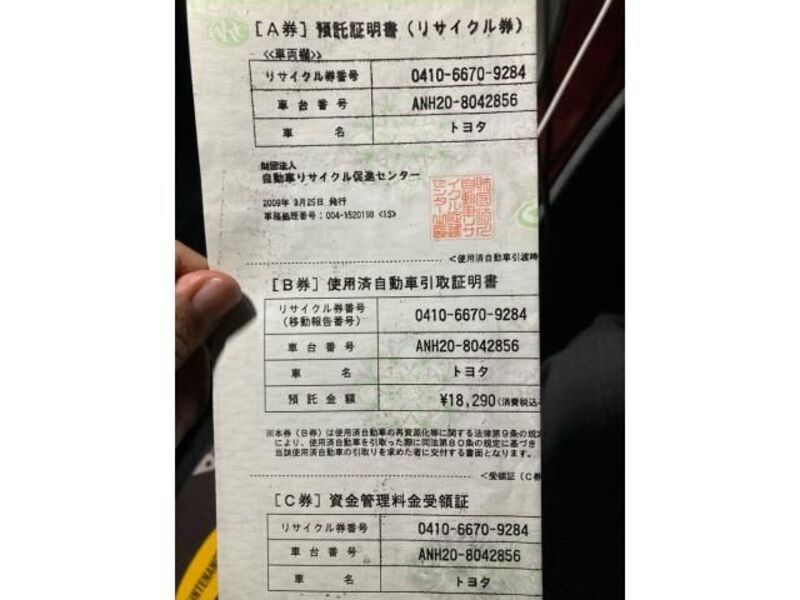 [A券] 預託証明書(リサイクル券)
≪車両欄≫
リサイクル券番号 0410-6670-9284
車台番号 ANH20-8042856
車名 トヨタ
財団法人
自動車リサイクル促進センター
2009年 3月25日 発行
事務処理番号:004-1520198 <1S>
<使用済自動車引渡時
[B券] 使用済自動車引取証明書
リサイクル券番号
(移動報告番号) 0410-6670-9284
車台番号 ANH20-8042856
車名 トヨタ
預託金額 ¥18,290(消費税込
※本券(B券)は使用済自動車の再資源化等に関する法律第9条の規定
により、使用済自動車を引取った際に同法第80条の規定に基づき
当該使用済自動車の引取りを求めた者に交付する書面となります。
<受領証(C券
[C券] 資金管理料金受領証
リサイクル券番号 0410-6670-9284
車台番号 ANH20-8042856
車名 トヨタ